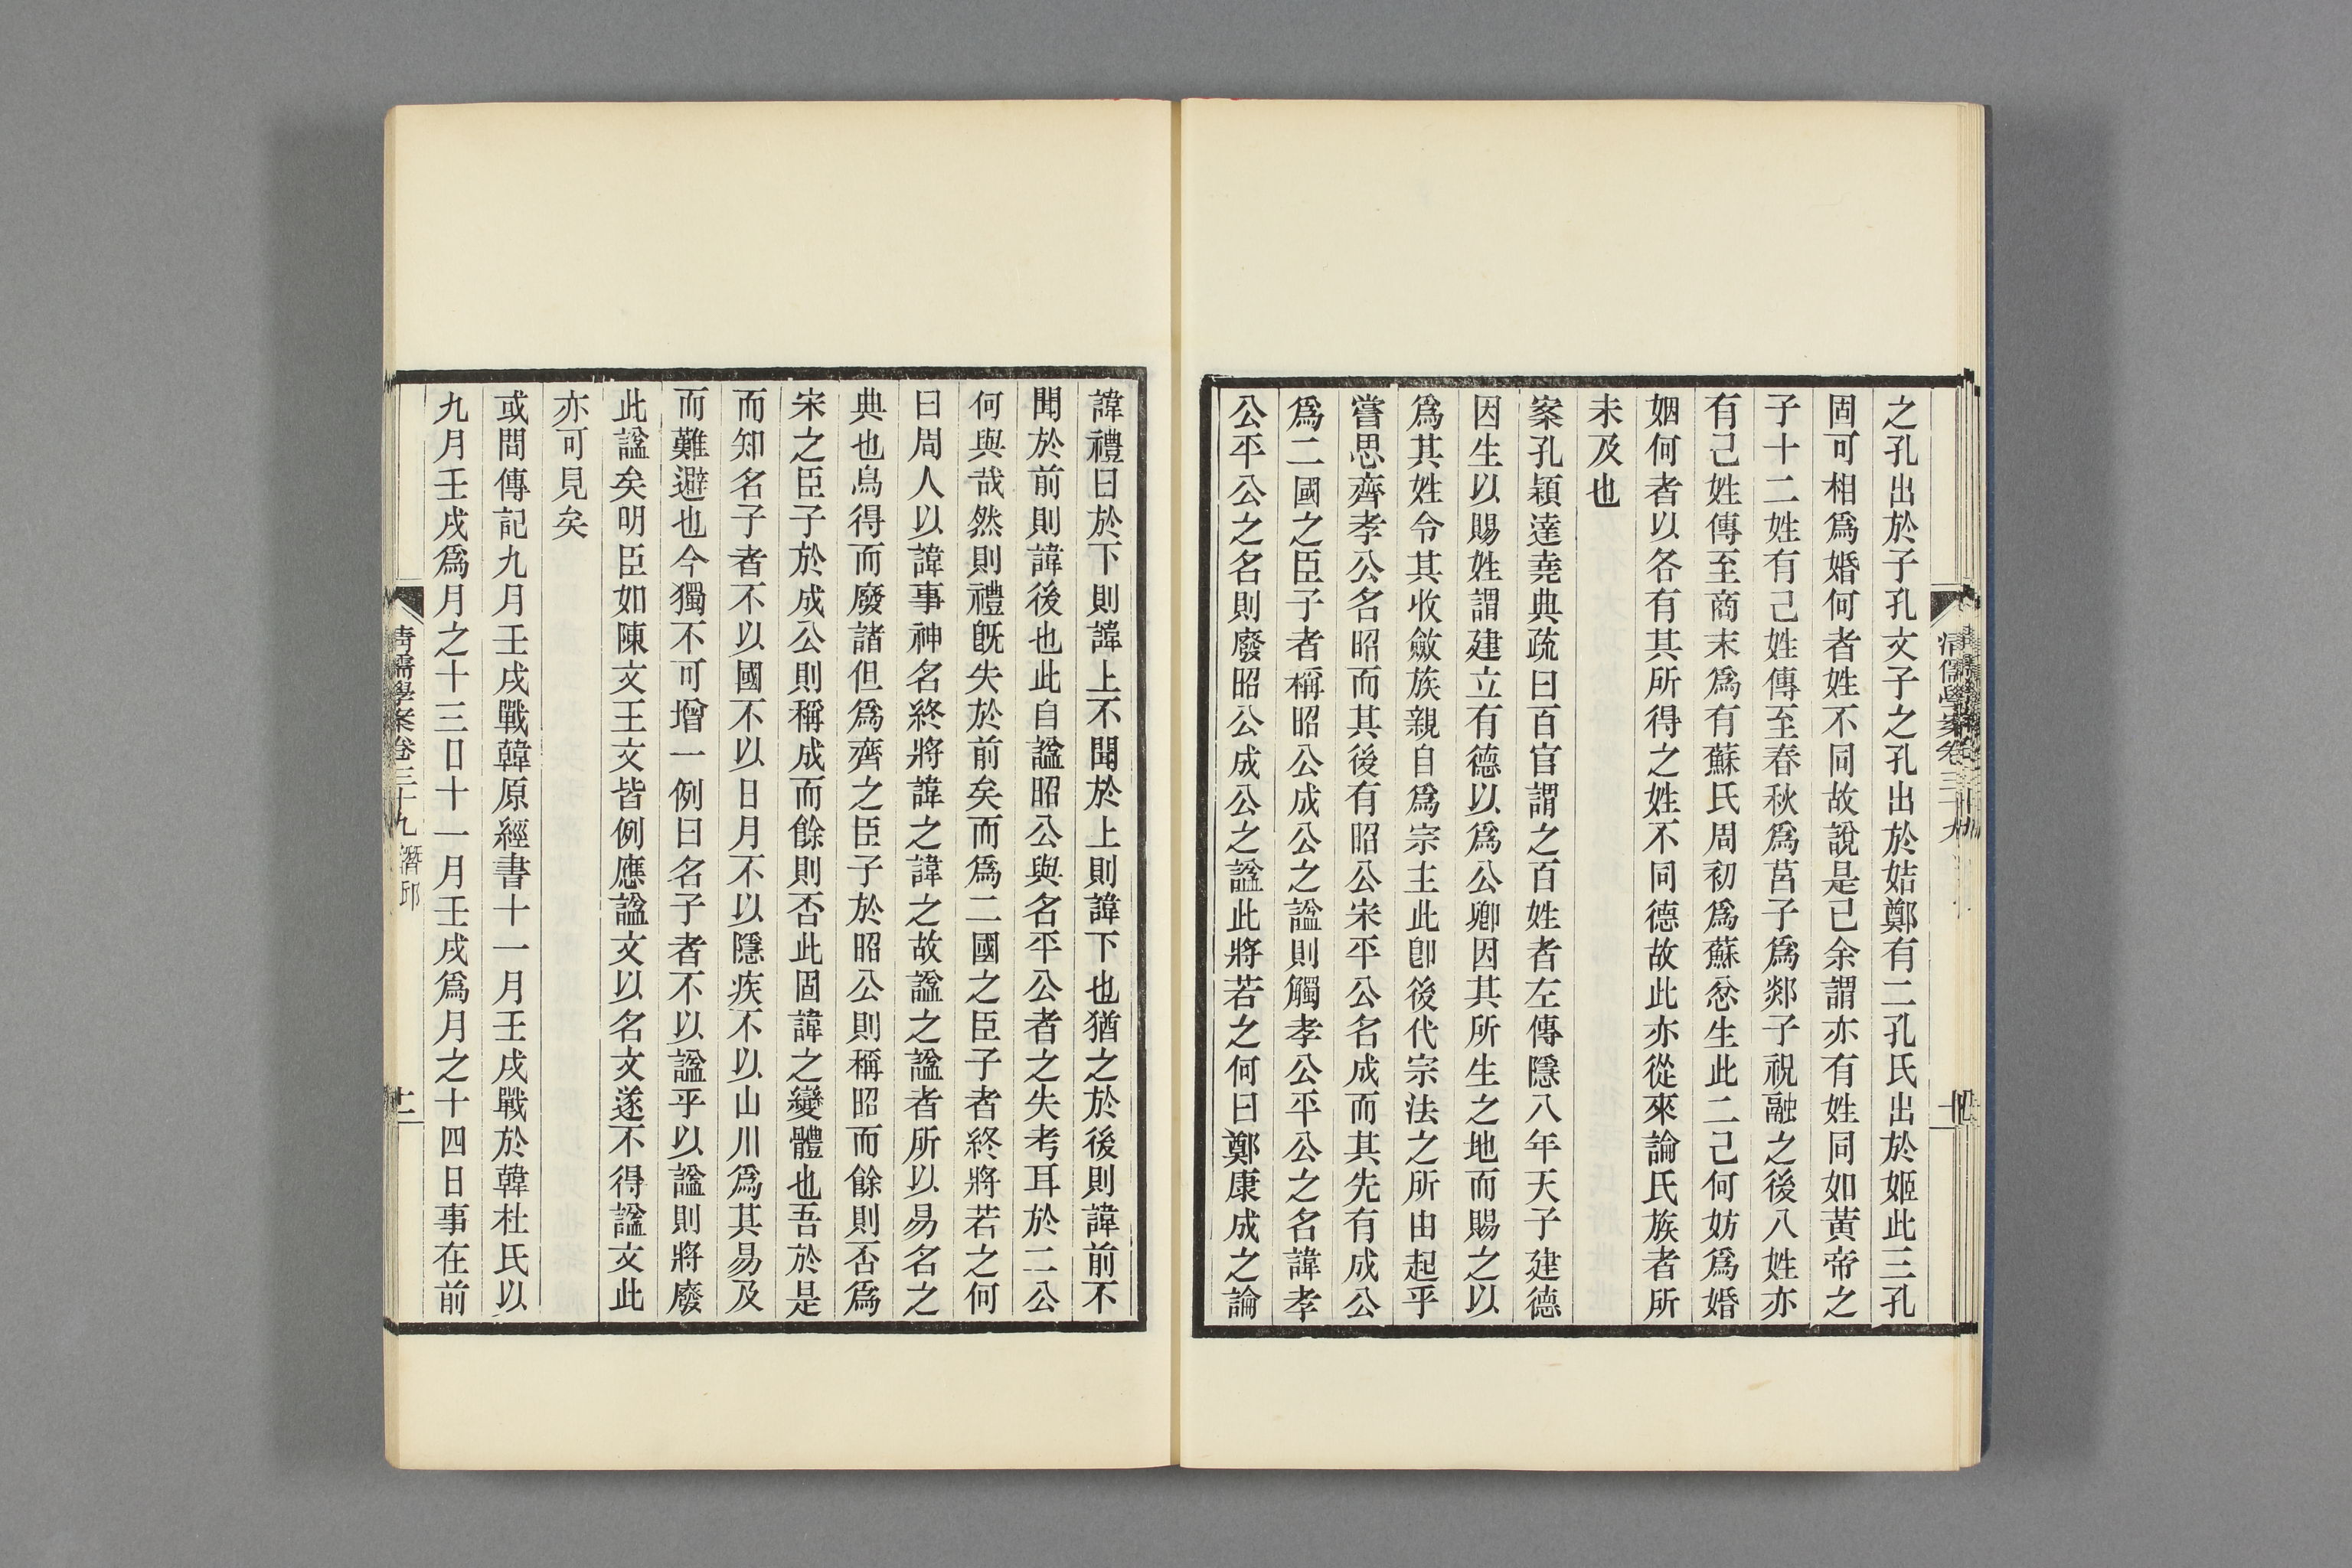 之孔出於子孔文子之孔出於姞鄭有二孔氏出於姬此三孔
固可相爲婚何者姓不同故說是已余謂亦有姓同如黃帝之
子十二姓有己姓傳至春秋爲莒子爲郯子祝融之後八姓亦
有己姓傳至商末爲有蘇氏周初爲蘇忿生此二己何妨爲婚
姻何者以各有其所得之姓不同德故此亦從來論氏族者所
未及也
案孔穎達堯典疏曰百官謂之百姓者左傳隱八年天子建德
因生以賜姓謂建立有德以爲公卿因其所生之地而賜之以
爲其姓令其收斂族親自爲宗主此卽後代宗法之所由起乎
嘗思齊孝公名昭而其後有昭公宋平公名成而其先有成公
爲二國之臣子者稱昭公成公之諡則觸孝公平公之名諱孝
公平公之名則廢昭公成公之諡此將若之何曰鄭康成之論
諱禮曰於下則諱上不聞於上則諱下也猶之於後則諱前不
聞於前則諱後也此自諡昭公與名平公者之失考耳於二公
何與哉然則禮旣失於前矣而爲二國之臣子者終將若之何
曰周人以諱事神名終將諱之諱之故諡之諡者所以易名之
典也烏得而廢諸但爲齊之臣子於昭公則稱昭而餘則否爲
宋之臣子於成公則稱成而餘則否此固諱之變體也吾於是
而知名子者不以國不以日月不以隱疾不以山川爲其易及
而難避也今獨不可增一例曰名子者不以諡乎以諡則將廢
此諡矣明臣如陳文王文皆例應諡文以名文遂不得諡文此
亦可見矣
或問傳記九月壬戌戰韓原經書十一月壬戌戰於韓杜氏以
九月壬戌爲月之十三日十一月壬戌爲月之十四日事在前
清儒學案卷三十九 潛邱